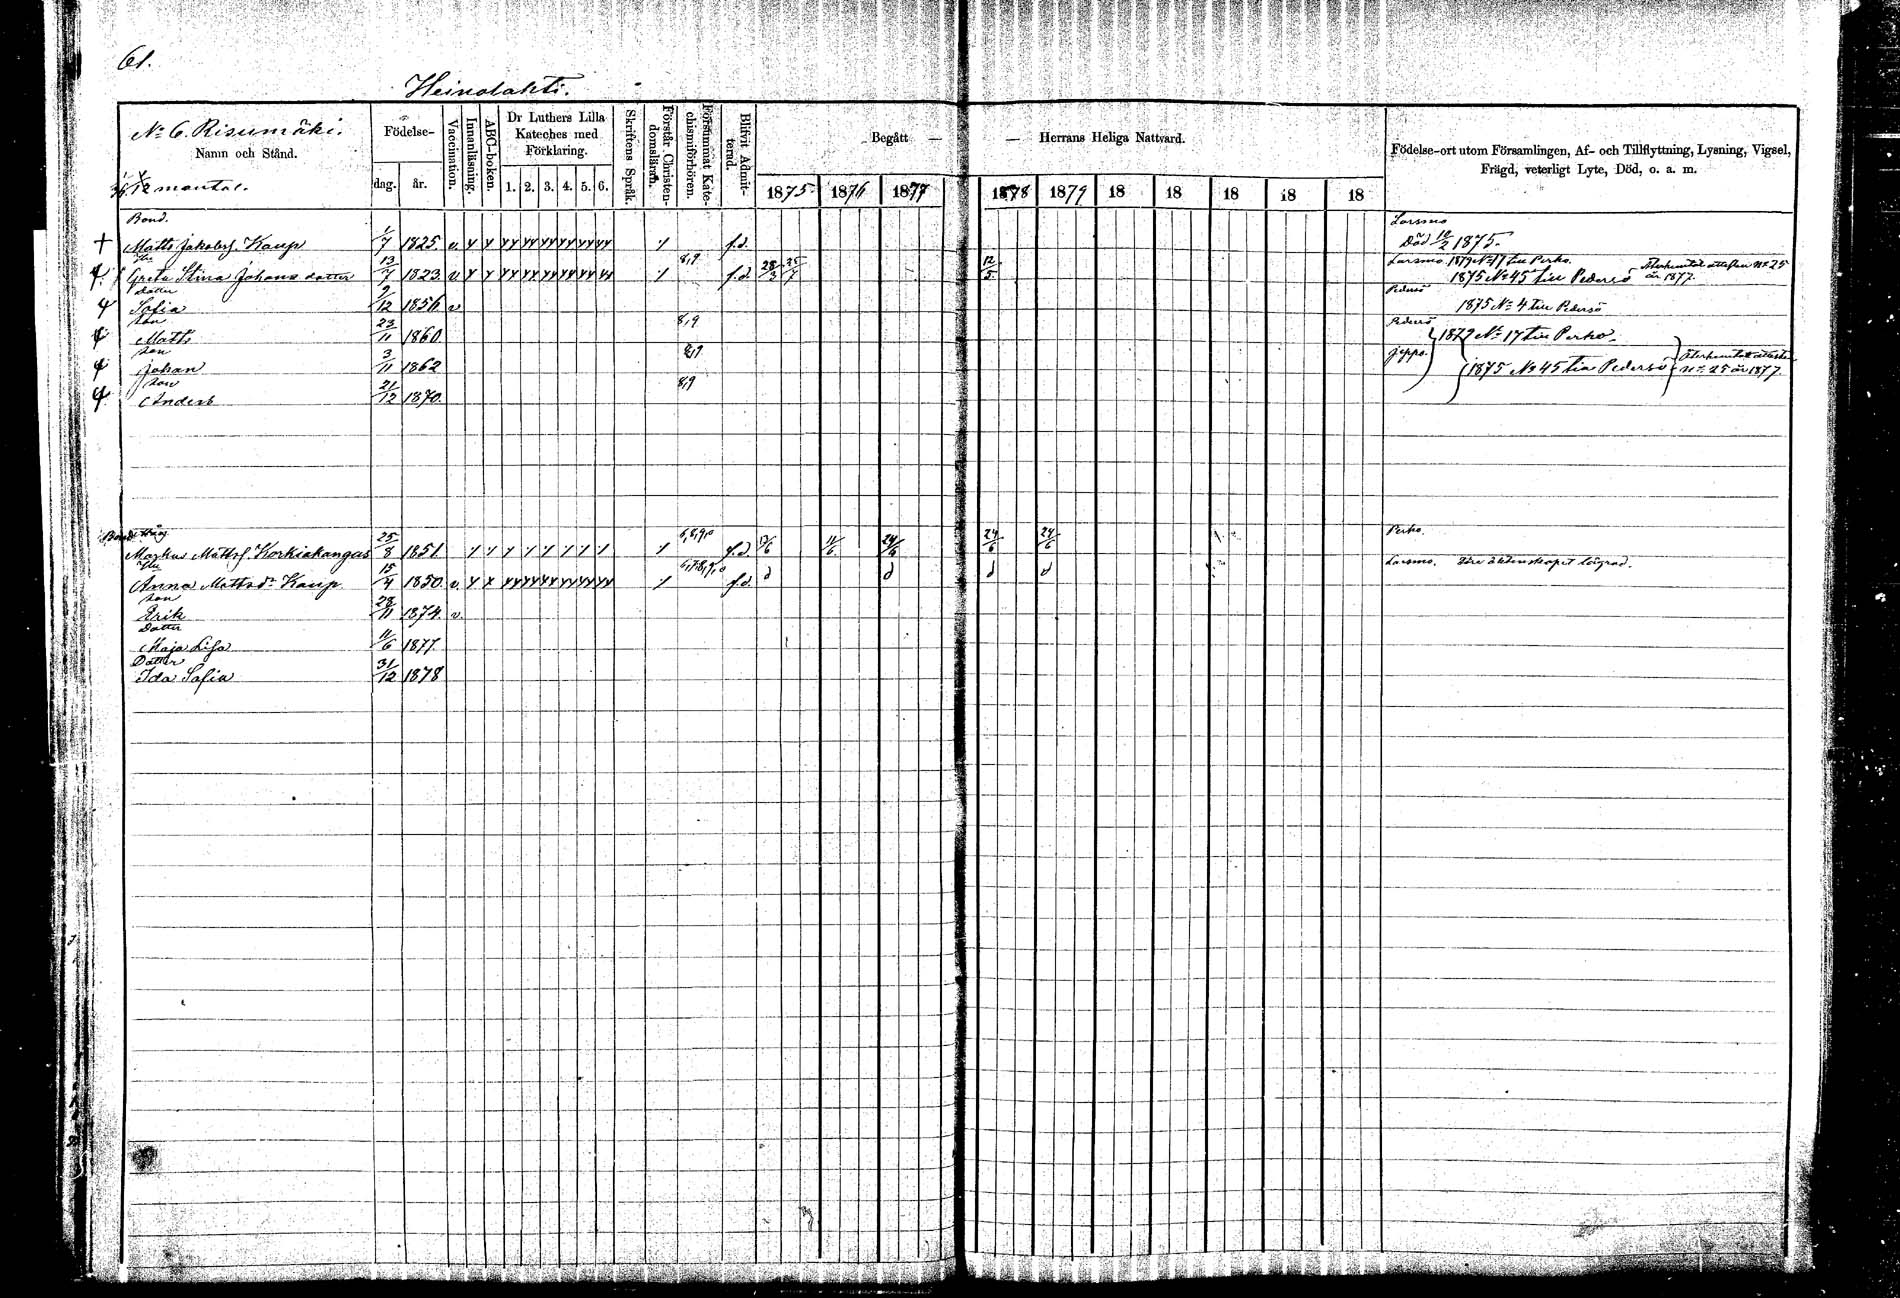 61.
Heinolahti.
No 6. Risumäki.
Namn och Stånd.
1/12 mantal.
Födelse-
dag. år.
Vaccination.
Innanläsning.
ABC-boken.
Dr Luthers Lilla Kateches med Förklaring.
1. 2. 3. 4. 5. 6.
Skriftens Språk.
Förstår Christendomsläran.
Försummat Katechismiförhören.
Blifvit Admitterad.
Begått — — Herrans Heliga Nattvard.
1875 1876 1877 1878 1879 18 18 18 18 18
Födelse-ort utom Församlingen, Af- och Tillflyttning, Lysning, Vigsel,
Frägd, veterligt Lyte, Död, o. a. m.
Bond. Larsmo
† Matts Jakobss. Kaup 1/7 1825. v. f.d. Död 10/2 1875.
Greta Stina Johans dotter 13/7 1823 v 8,9 f.d. 28/3 25/7 12/5 Larsmo 1879 No 17 till Perho.
1875 No 45 till Pedersö Återhemtat attesten No 25 år 1877.
Dotter Pedersö
Sofia 2/12 1856 v 1875 No 4 till Pedersö
Son Pedersö
Matts 23/11 1860 8,9 1879 No 17 till Perho.
Son Jeppo.
Johan 3/11 1862 1875 No 45 till Pedersö No 25 år 1877.
Son
Anders 21/12 1870. 8,9
Bond. Perho.
Markus Mattss. Korkiakangas 25/8 1851. 6,8,9,0 f.d. 13/6 11/6 24/6 24/6 24/6
Anna Mattsdr Kaup 15/4 1850. v. f.d. d d d d Larsmo. Före äktenskapet lägrad.
Son
Erik 28/11 1874. v.
Dotter
Maja Lisa 11/6 1877.
Dotter
Ida Sofia 31/12 1878